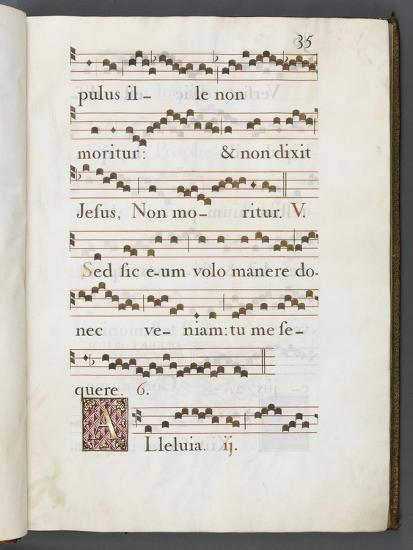 35
pulus il– le non
moritur: & non dixit
Jesus, Non mo– ritur. V.
Sed sic e-um volo manere do-
nec ve– niam: tu me se-
quere. 6.
Alleluia. ij.